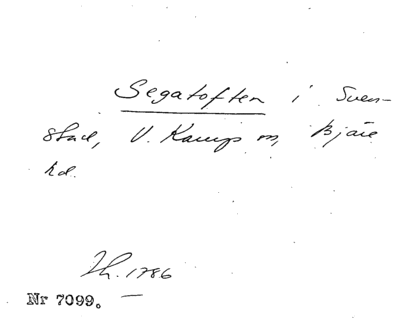 Segatoften i Sven-
stad, V. Karup sn, Bjäre
hd.
Lh. 1786
Nr 7099.